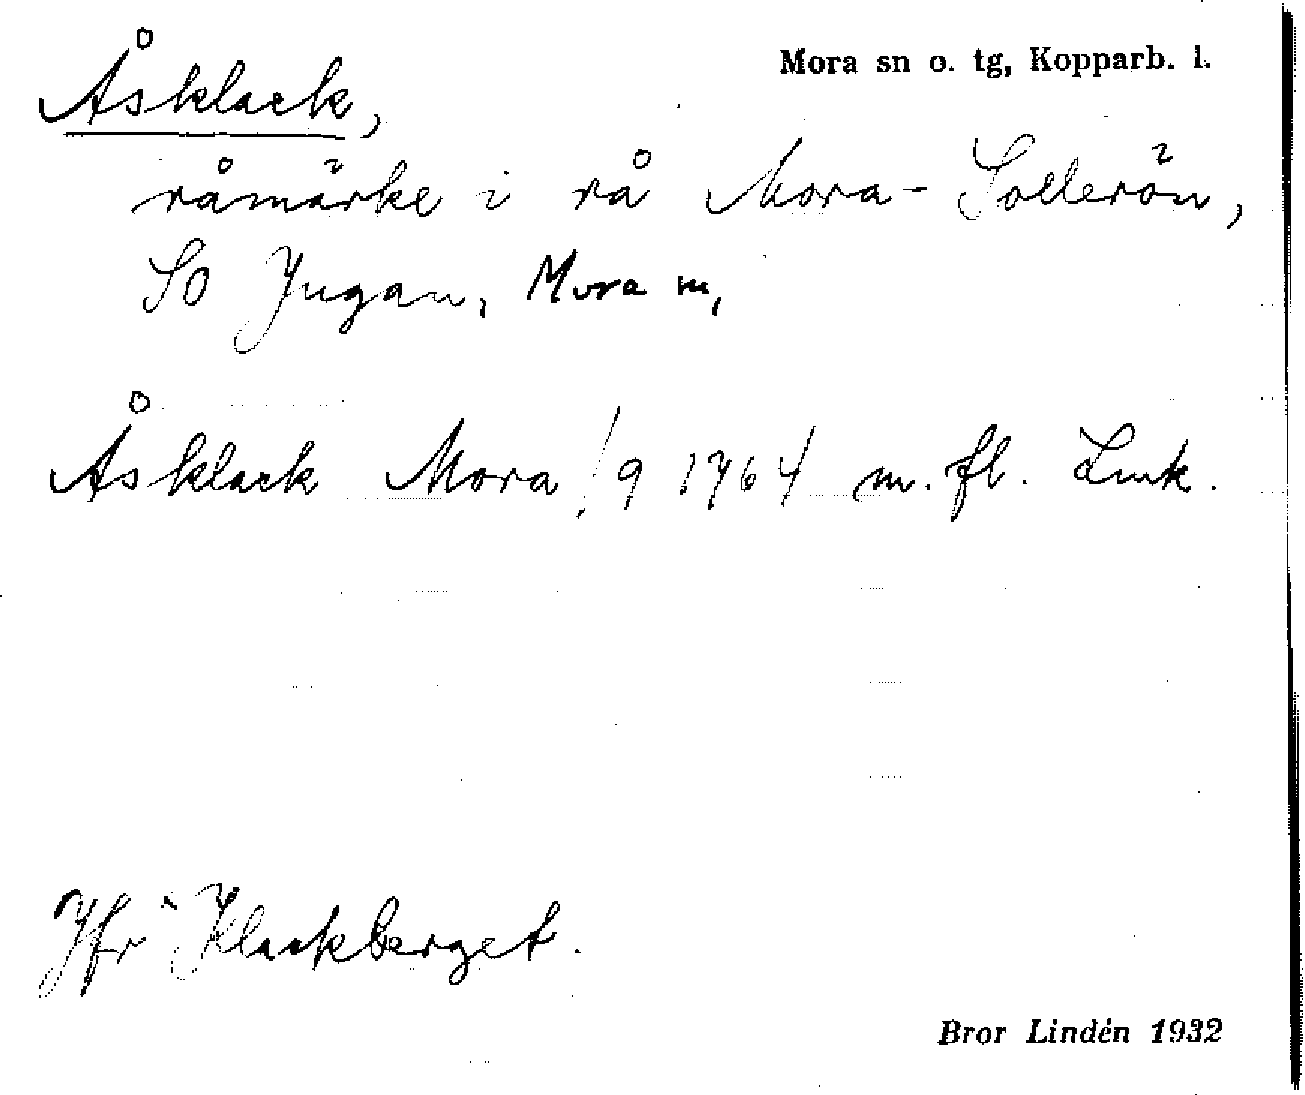 Mora sn o. tg, Kopparb. l.
Åsklack,
råmärke i rå Mora-Sollerön,
SO Jugan, Mora sn,
Åsklack Mora 1/9 1764 m. fl. Lmk.
Jfr Klackberget.
Bror Lindén 1932